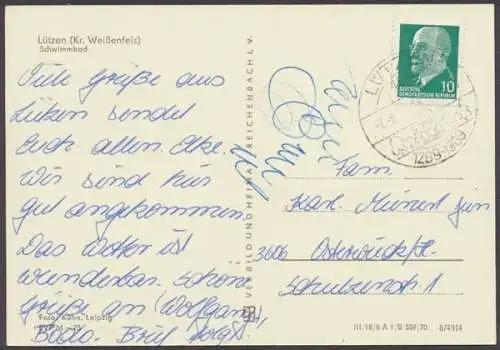 Lützen (Kr. Weißenfels)
Schwimmbad
Viele Grüße aus
Lützen sendet
Euch allen Elke.
Wir sind hier
gut angekommen.
Das Wetter ist
wunderbar. Schöne
Grüße an Wolfgang,
Foto: Kühn, Leipzig
VERLAG BILD UND HEIMAT REICHENBACH I. V.
10
DEUTSCHE
DEMOKRATISCHE REPUBLIK
LÜTZEN
Fam.
Karl Meinert jun
3606 Osterwieck/H.
Schulzenstr. 1
III/18/6 A 1/B 509/70 874914